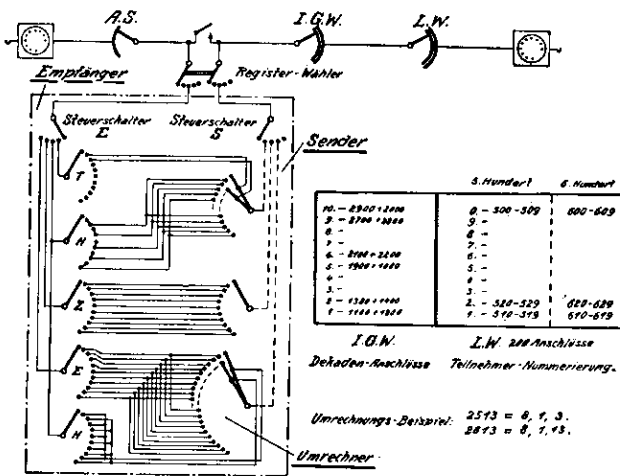 A.S.
I.G.W.
L.W.
Empfänger
Register-Wähler
Steuerschalter
E
Steuerschalter
S
Sender
T
H
Z
E
H
Umrechner
5. Hundert 6. Hundert
10. - 2900 + 2000 0. - 500-509 600-609
9. - 9. -
8. - 8 -
7 - 7 -
6. - 2100 + 2200 6. -
5. - 5. -
4 - 4 -
3. - 3. -
2. - 1300 + 1400 2. - 520-529 620-629
1. - 1. - 510-519 610-619
I.G.W. L.W. 200 Anschlüsse
Dekaden-Anschlüsse Teilnehmer-Nummerierung.
Umrechnungs-Beispiel: 2513 = 8, 1, 3.
2613 = 8, 1, 13.